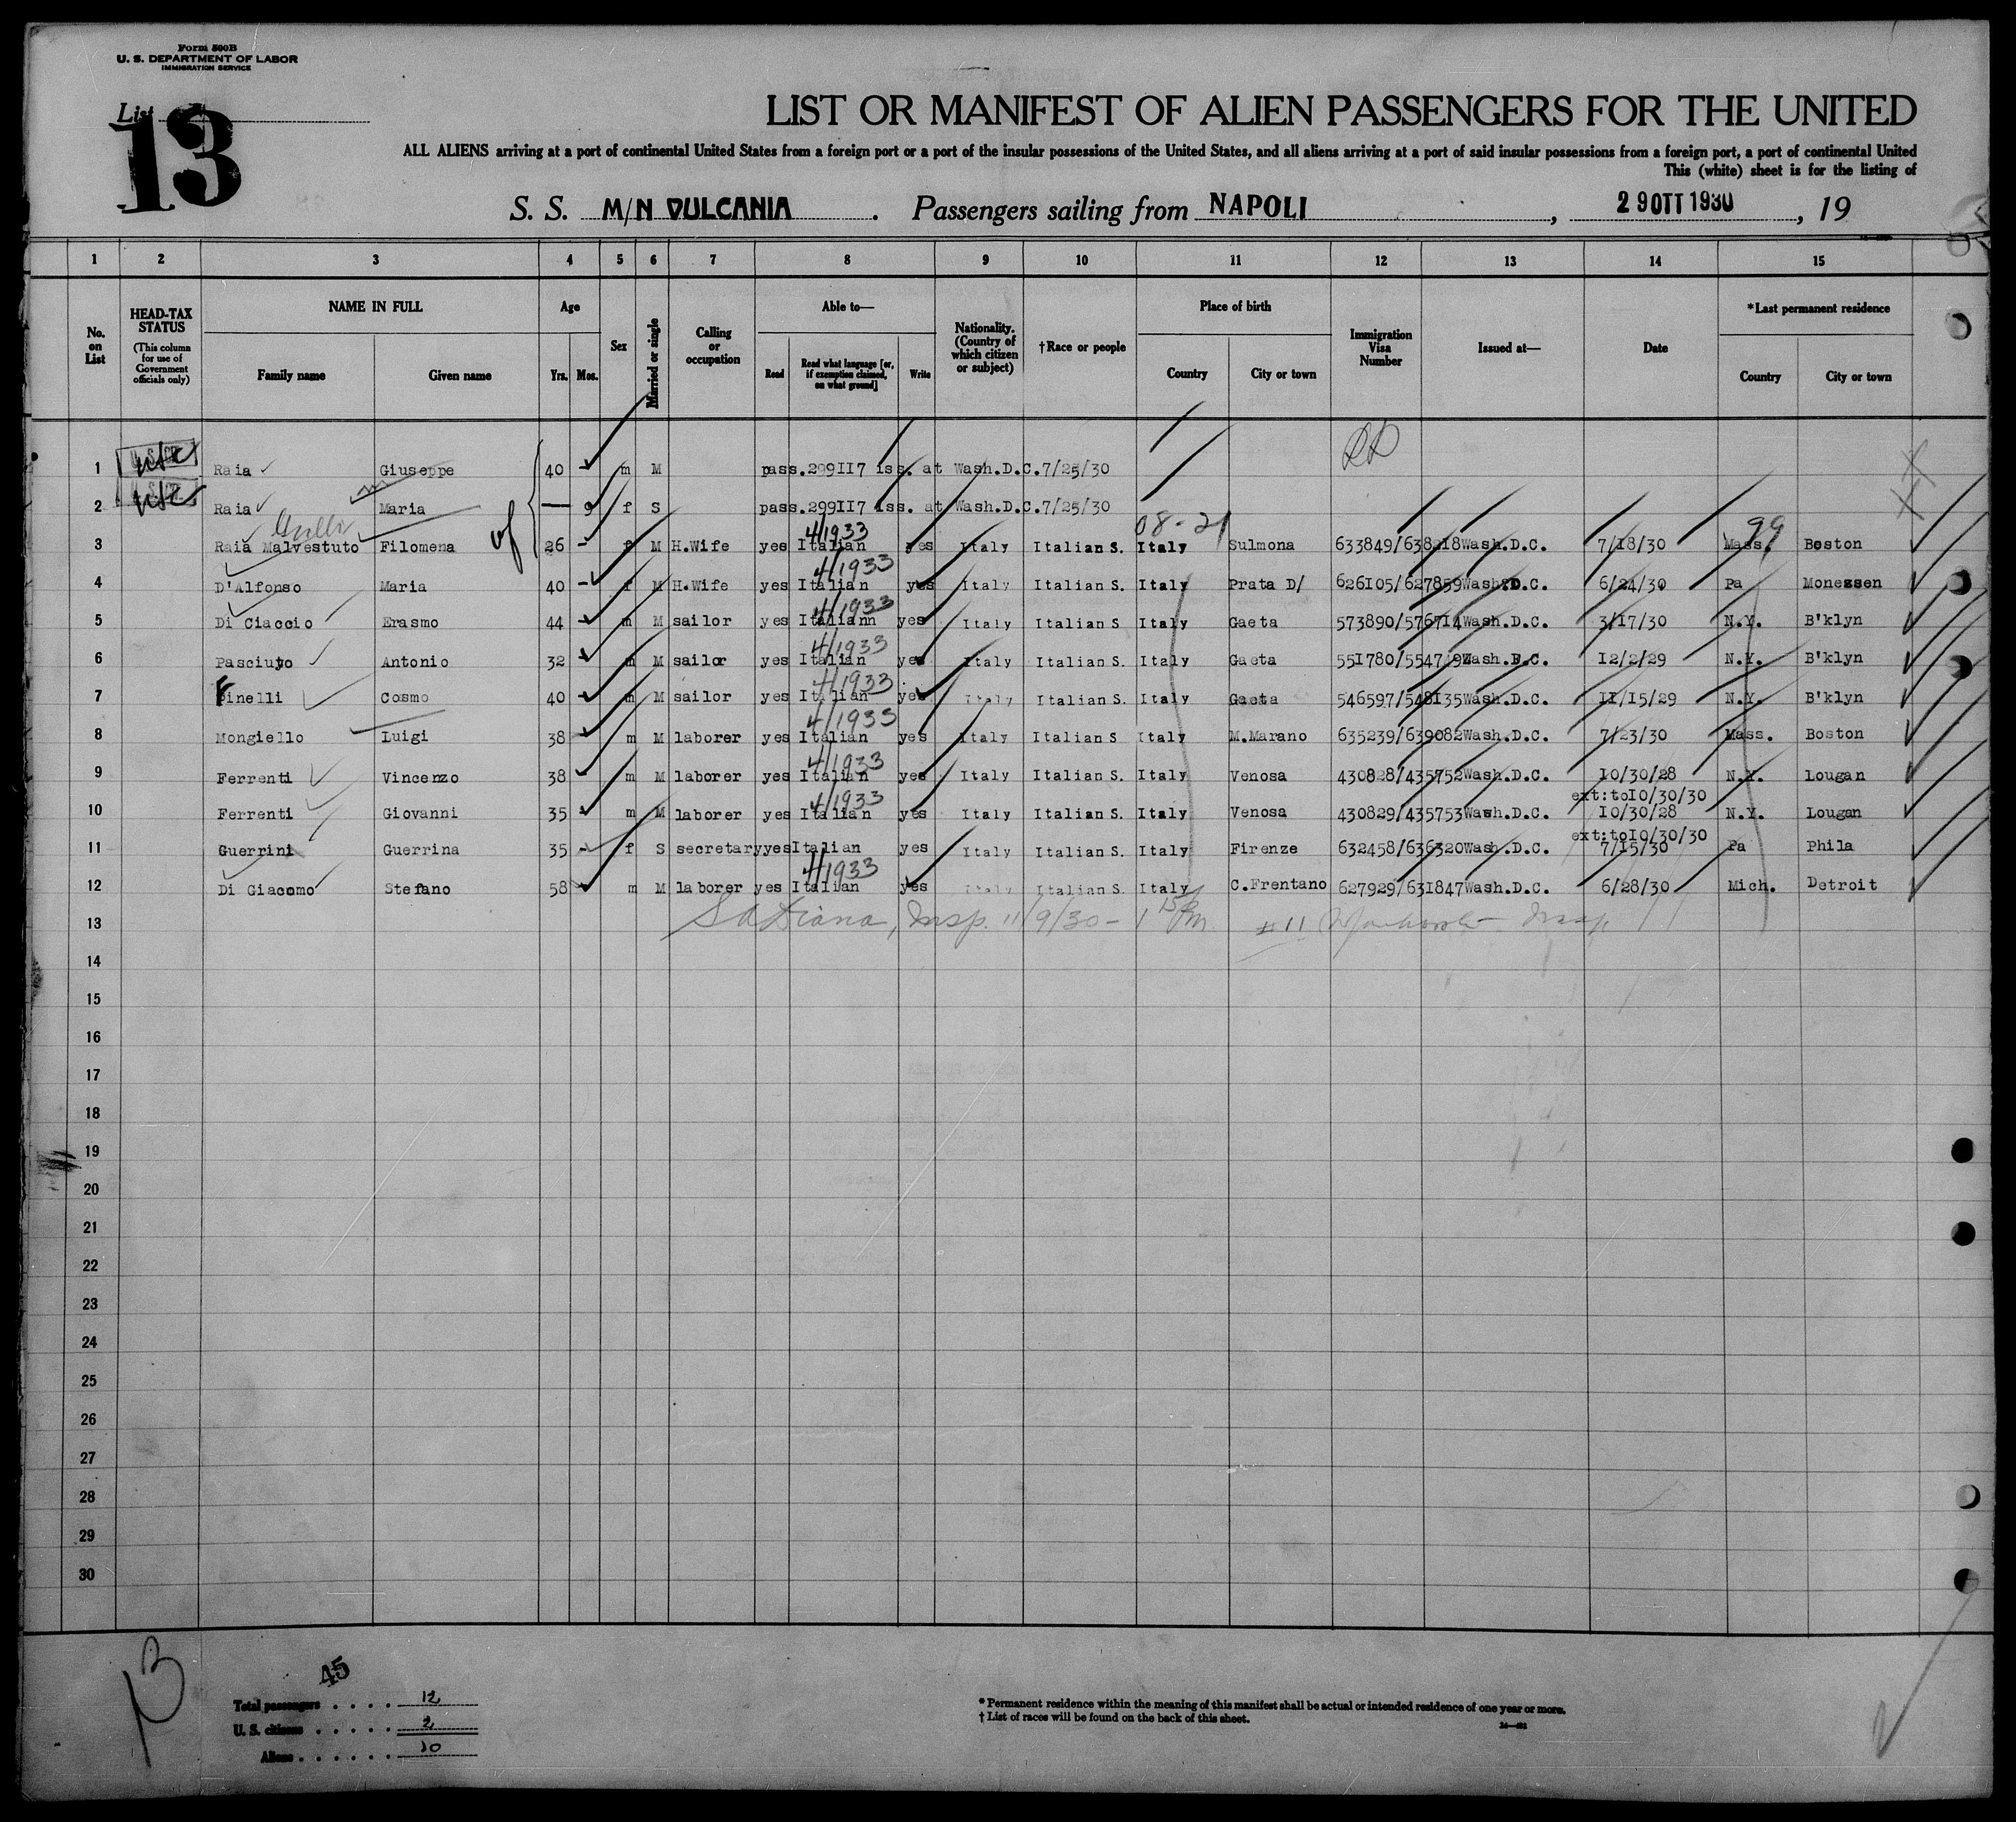 Form 500B
U. S. DEPARTMENT OF LABOR
IMMIGRATION SERVICE
List
13
LIST OR MANIFEST OF ALIEN PASSENGERS FOR THE UNITED
ALL ALIENS arriving at a port of continental United States from a foreign port or a port of the insular possessions of the United States, and all aliens arriving at a port of said insular possessions from a foreign port, a port of continental United
This (white) sheet is for the listing of
S. S. M/N VULCANIA . Passengers sailing from NAPOLI , 29 OTT 1930 , 19
1 2 3 4 5 6 7 8 9 10 11 12 13 14 15
No. on List
HEAD-TAX STATUS (This column for use of Government officials only)
NAME IN FULL Family name Given name
Age Yrs. Mos.
Sex
Married or single
Calling or occupation
Able to— Read Read what language [or, if exemption claimed, on what ground] Write
Nationality. (Country of which citizen or subject)
†Race or people
Place of birth Country City or town
Immigration Visa Number
Issued at—
Date
*Last permanent residence Country City or town
1 usc Raia Giuseppe 40 m M pass.299II7 iss. at Wash.D.C.7/25/30
2 usc Raia Maria — 9 f S pass.299II7 iss. at Wash.D.C.7/25/30
4/1933 08-21 99
3 Raia Malvestuto Filomena 26 - f M H.Wife yes Italian yes Italy Italian S. Italy Sulmona 633849/638218 Wash.D.C. 7/18/30 Mass. Boston
4/1933
4 D'Alfonso Maria 40 - f M H.Wife yes Italian yes Italy Italian S. Italy Prata D/ 626105/627859 Wash.D.C. 6/24/30 Pa Monessen
4/1933
5 Di Ciaccio Erasmo 44 - m M sailor yes Italiann yes Italy Italian S. Italy Gaeta 573890/576714 Wash.D.C. 3/17/30 N.Y. B'klyn
4/1933
6 Pasciuto Antonio 32 m M sailor yes Italian yes Italy Italian S. Italy Gaeta 551780/55479 Wash. 12/2/29 N.Y. B'klyn
4/1933
7 Finelli Cosmo 40 - m M sailor yes Italian yes Italy Italian S. Italy Gaeta 546597/548135 Wash.D.C. 11/15/29 N.Y. B'klyn
4/1933
8 Mongiello Luigi 38 m M laborer yes Italian yes Italy Italian S Italy M.Marano 635239/639082 Wash.D.C. 7/23/30 Mass. Boston
4/1933
9 Ferrenti Vincenzo 38 m M laborer yes Italian yes Italy Italian S. Italy Venosa 430828/435752 Wash.D.C. 10/30/28 N.Y. Lougan
4/1933 ext:to10/30/30
10 Ferrenti Giovanni 35 m M laborer yes Italian yes Italy Italian S. Italy Venosa 430829/435753 Wash.D.C. 10/30/28 N.Y. Lougan
ext:to10/30/30
11 Guerrini Guerrina 35 - f S secretary yes Italian yes Italy Italian S. Italy Firenze 632458/636320 Wash.D.C. 7/15/30 Pa Phila
4/1933
12 Di Giacomo Stefano 58 m M laborer yes Italian yes Italy Italian S. Italy C.Frentano 627929/631847 Wash.D.C. 6/28/30 Mich. Detroit
13 Insp. 11/9/30 - 1 Pm #11 Insp.
14
15
16
17
18
19
20
21
22
23
24
25
26
27
28
29
30
13
45
Total passengers . . . . 12
U. S. citizens . . . . . 2
Aliens . . . . . . 10
* Permanent residence within the meaning of this manifest shall be actual or intended residence of one year or more.
† List of races will be found on the back of this sheet.